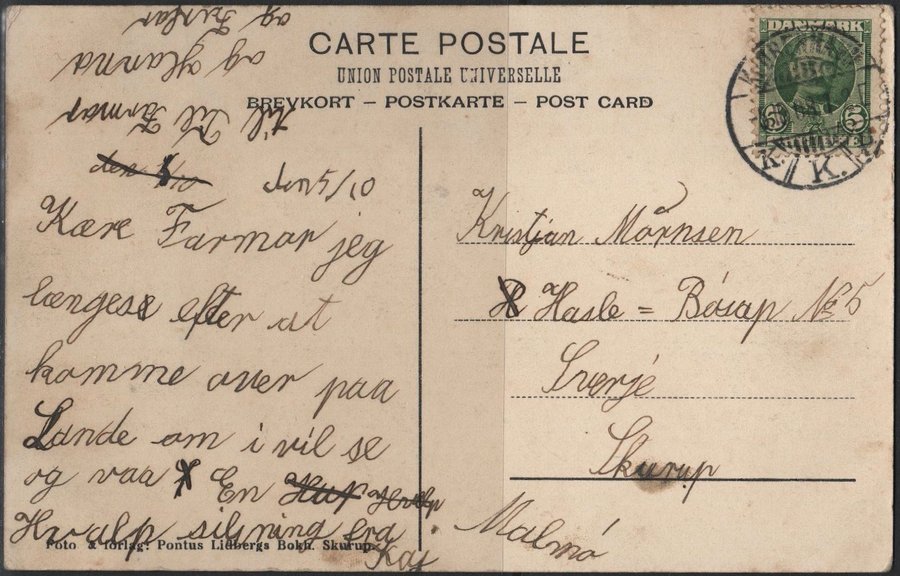 CARTE POSTALE
UNION POSTALE UNIVERSELLE
BREVKORT – POSTKARTE – POST CARD
DANMARK
5 5
K.
den 5/10
Kære Farmor jeg
længese efter at
komme over paa
Lande om i vil se
og vaa En Hvalp
Hvalp siljning fra
Kaj
til Farmor
og Hanna
og Farfar
Kristjan Mörnsen
Hasle = Bósap No 5
Sverje
Skurup
Malmó
Foto & förlag: Pontus Lidbergs Bokh. Skurup.